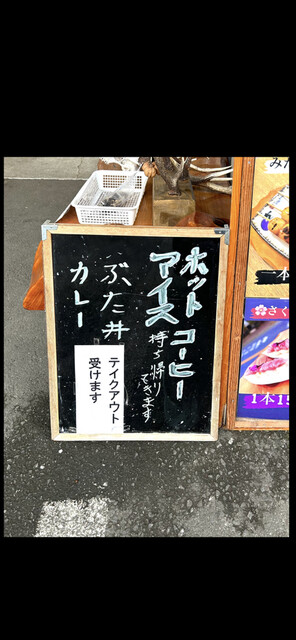 ホット
アイス
コーヒー
持ち帰りできます
ぶた丼
カレー
テイクアウト
受けます
みた
一本
さく
1本15